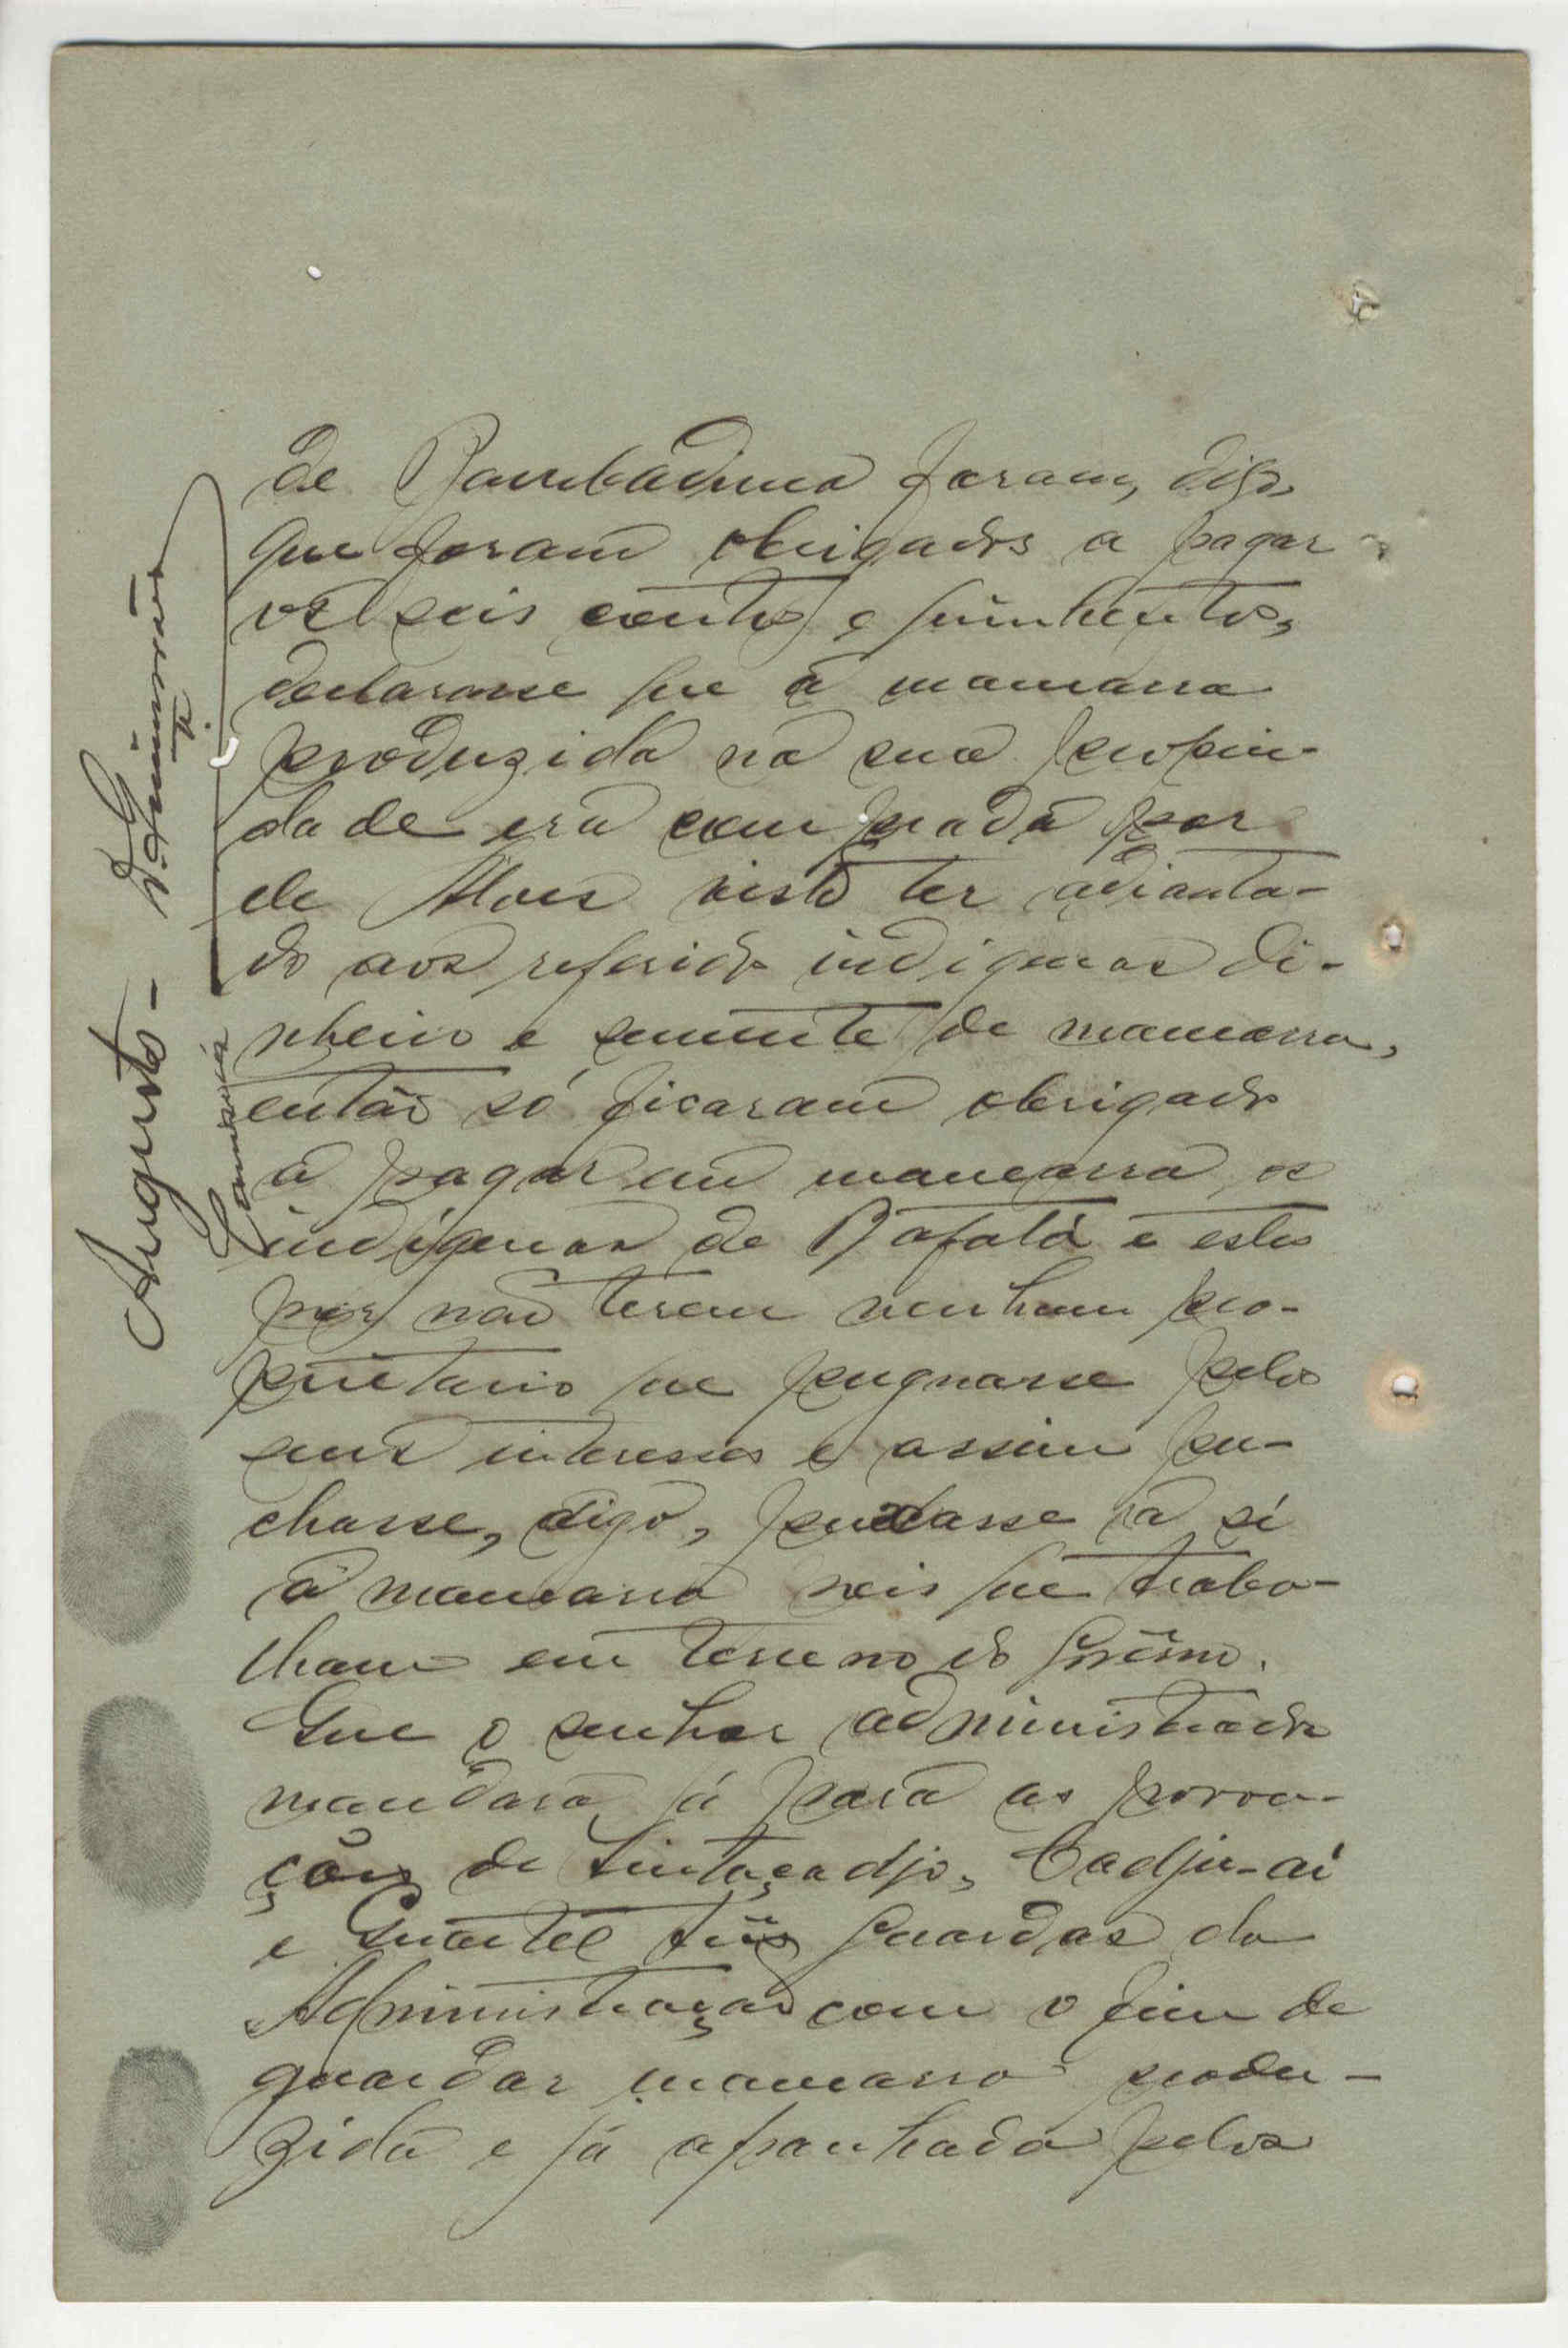 de Bambadinca foram, digo,
que foram obrigados a pagar
os seis contos e quinhentos,
declarasse que a mancarra
produzida na sua proprie-
dade era comprada por
ele Alves visto ter adianta-
do aos referidos indigenas di-
nheiro e semente de mancarra,
então só ficaram obrigados
a pagar em mancarra os
indigenas de Bafatá e estes
por não terem nenhum pro-
prietario que pugnasse pelos
seus interesses e assim pu-
chasse, digo, puxasse a si
a mancarra pois que traba-
lham em terreno do
Que o senhor administrador
mandara já para as povoa-
ções de Sintaçadjo, Cadju-ai
e Quartel tres guardas da
Administração com o fim de
guardar mancarra produ-
zida e já apanhada pelos
Augusto -